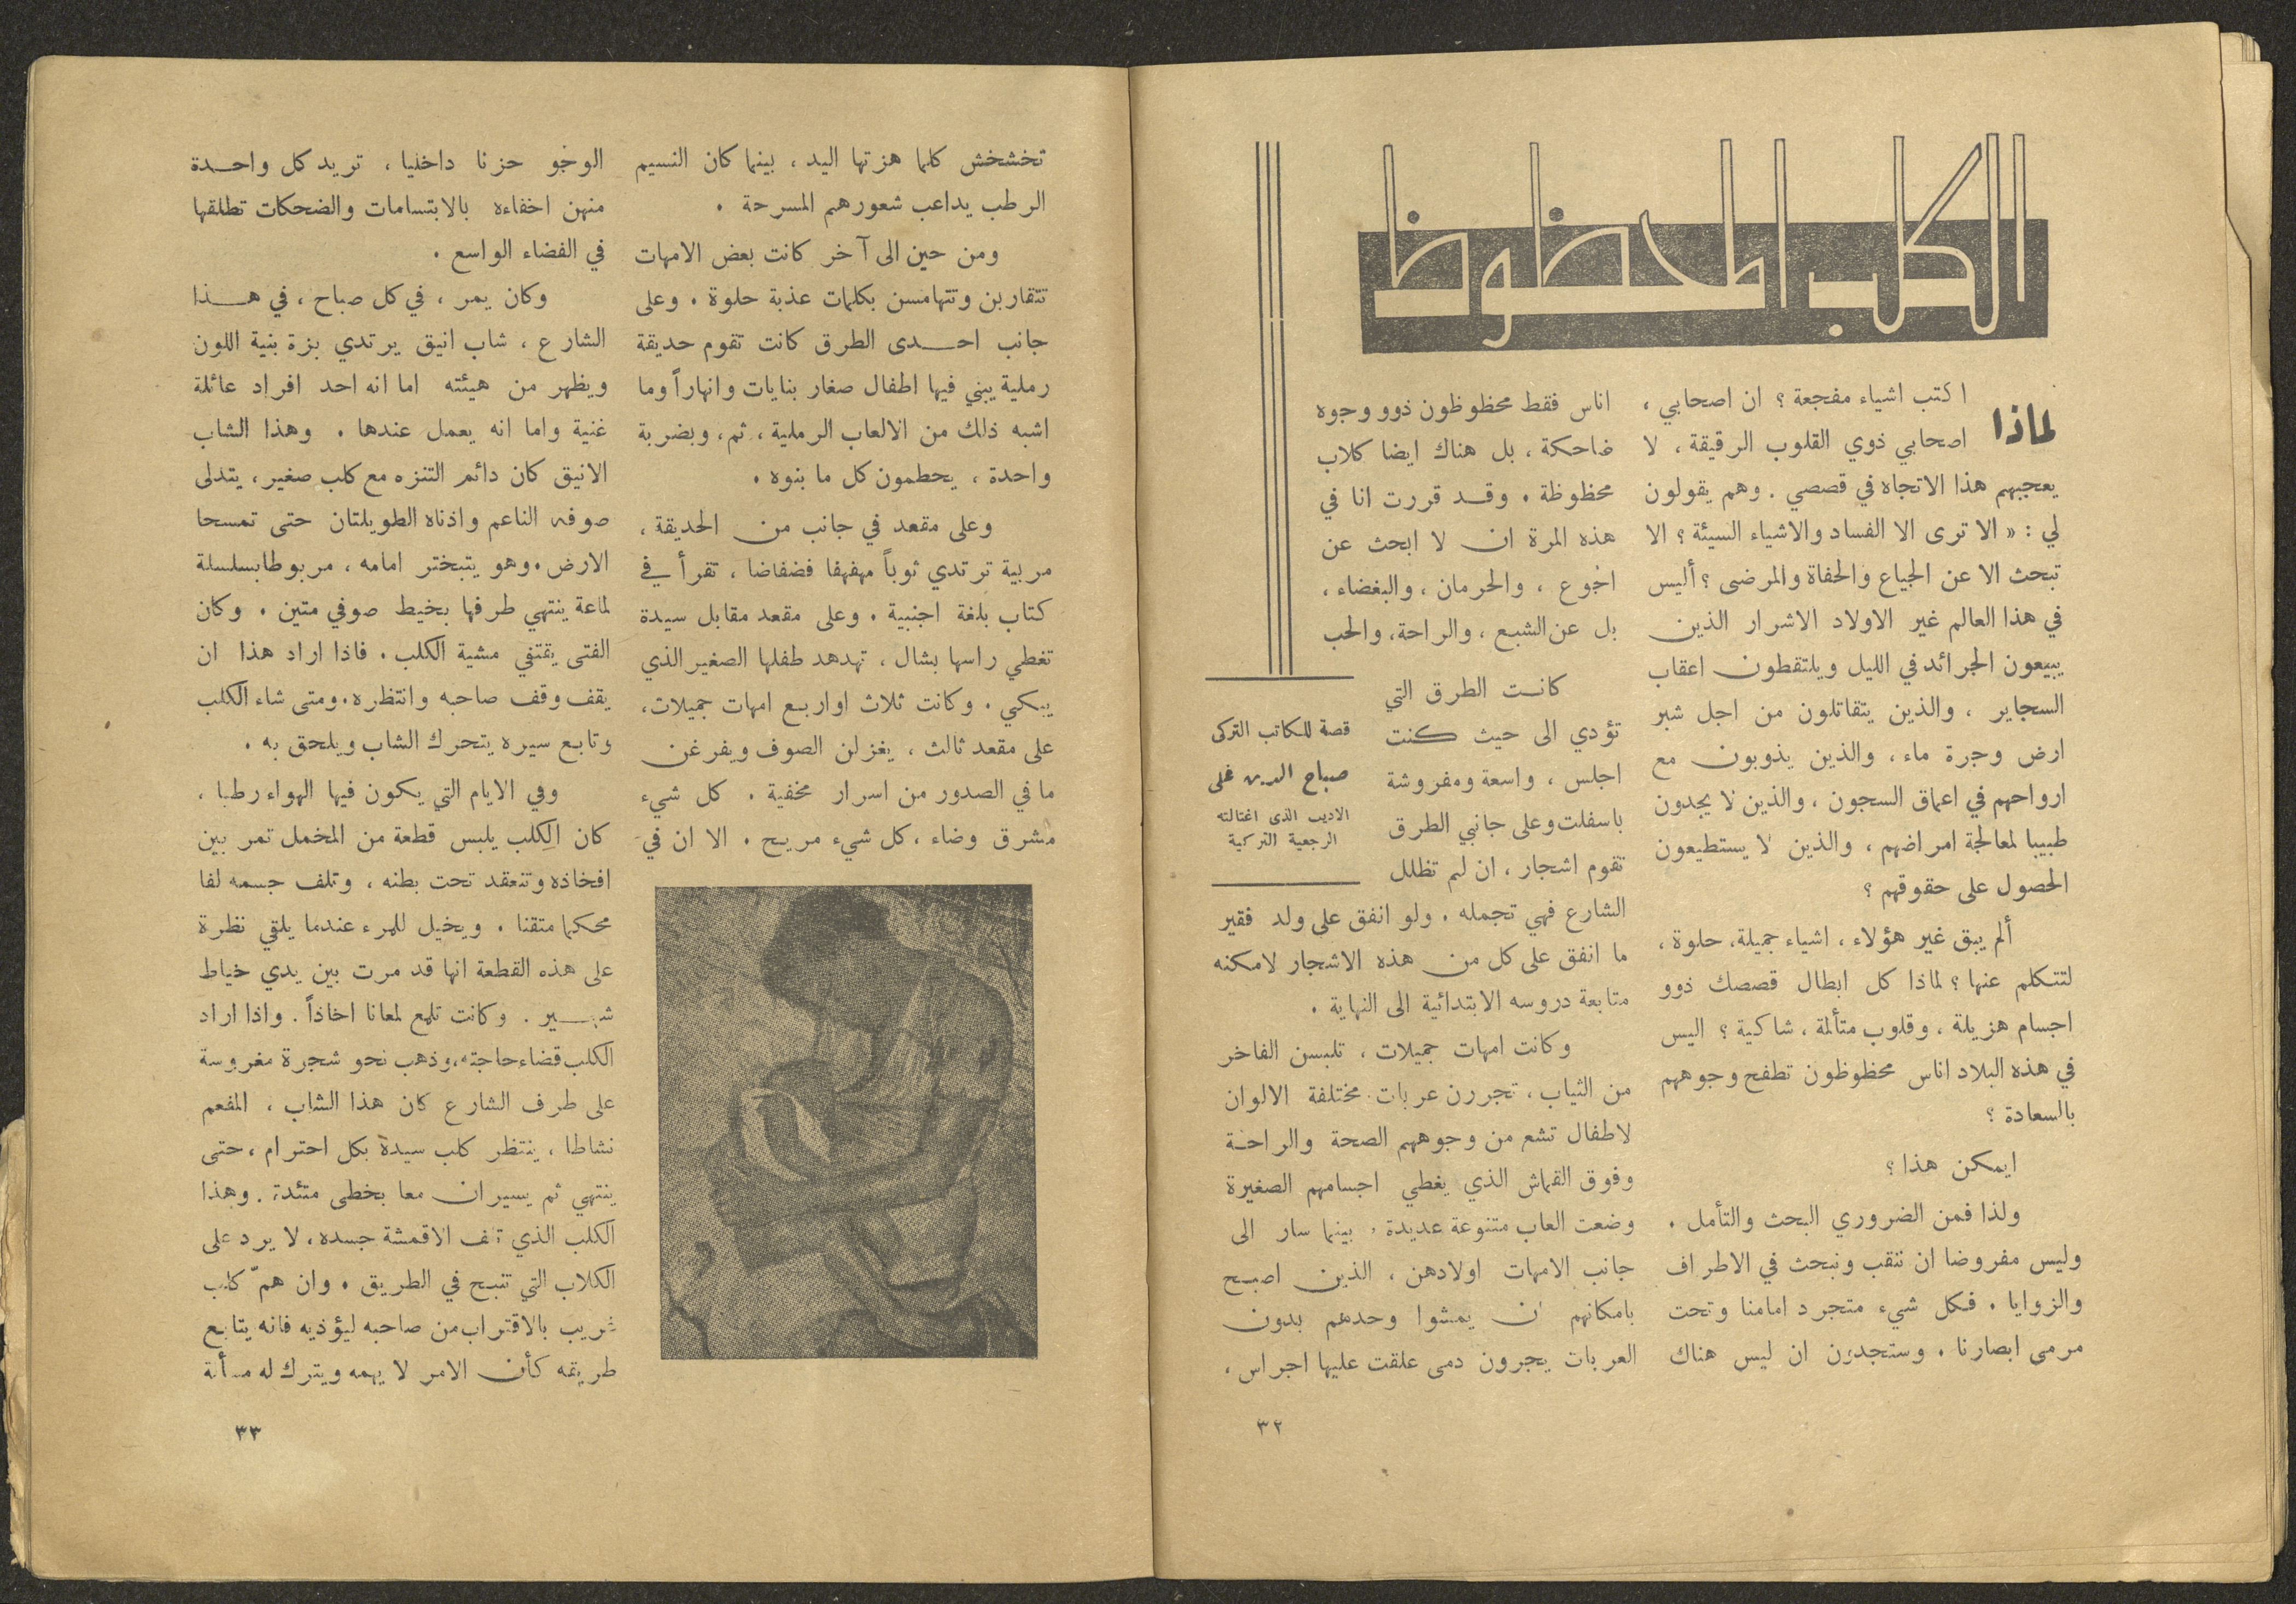 الكلب المحظوظ
لماذا
اكتب اشياء مفجعة ؟ ان اصحابي ،
اصحابي ذوي القلوب الرقيقة ، لا
يعجبهم هذا الاتجاه في قصصي . وهم يقولون
لي : « الا ترى الا الفساد والاشياء السيئة ؟ الا
تبحث الا عن الجياع والحفاة والمرضى ؟ أليس
في هذا العالم غير الاولاد الاشرار الذين
يبيعون الجرائد في الليل ويلتقطون اعقاب
السجاير ، والذين يتقاتلون من اجل شبر
ارض وجرة ماء ، والذين يذوبون مع
ارواحهم في اعماق السجون ، والذين لا يجدون
طبيبا لمعالجة امراضهم ، والذين لا يستطيعون
الحصول على حقوقهم ؟
ألم يبق غير هؤلاء ، اشياء جميلة، حلوة ،
لتتكلم عنها ؟ لماذا كل ابطال قصصك ذوو
اجسام هزيلة ، وقلوب متألمة ، شاكية ؟ اليس
في هذه البلاد اناس محظوظون تطفح وجوههم
بالسعادة ؟
ايمكن هذا ؟
ولذا فمن الضروري البحث والتأمل .
وليس مفروضا ان ننقب ونبحث في الاطراف
والزوايا . فكل شيء متجرد امامنا وتحت
مرمى ابصارنا . وستجدون ان ليس هناك
اناس فقط محظوظون ذوو وجوه
ضاحكة ، بل هناك ايضا كلاب
محظوظة . وقد قررت انا في
هذه المرة ان لا ابحث عن
الجوع ، والحرمان ، والبغضاء ،
بل عن الشبع ، والراحة، والحب
كانت الطرق التي
تؤدي الى حيث كنت
اجلس ، واسعة ومفروشة
باسفلت وعلى جانبي الطرق
تقوم اشجار ، ان لم تظلل
الشارع فهي تجمله . ولو انفق على ولد فقير
ما انفق على كل من هذه الاشجار لامكنه
متابعة دروسه الابتدائية الى النهاية .
وكانت امهات جميلات ، تلبسن الفاخر
من الثياب ، تجررن عربات مختلفة الالوان
لاطفال تشع من وجوههم الصحة والراحة
وفوق القماش الذي يغطي اجسامهم الصغيرة
وضعت العاب متنوعة عديدة ، بينما سار الى
جانب الامهات اولادهن ، الذين اصبح
بامكانهم ان يمشوا وحدهم بدون
العربات يجرون دمى علقت عليها اجراس ،
قصة للكاتب التركى
صباح الدين على
الاديب الذى اغتالته
الرجعية التركية
٣٢
تخشخش كلما هزتها اليد ، بينما كان النسيم
الرطب يداعب شعورهم المسرحة .
ومن حين الى آخر كانت بعض الامهات
تتقاربن وتتهامسن بكلمات عذبة حلوة . وعلى
جانب احدى الطرق كانت تقوم حديقة
رملية يبني فيها اطفال صغار بنايات وانهاراً وما
اشبه ذلك من الالعاب الرملية ، ثم ، وبضربة
واحدة ، يحطمون كل ما بنوه .
وعلى مقعد في جانب من الحديقة ،
مربية ترتدي ثوباً مهفهفا فضفاضا ، تقرأ في
كتاب بلغة اجنبية . وعلى مقعد مقابل سيدة
تغطي راسها بشال ، تهدهد طفلها الصغير الذي
يبكي . وكانت ثلاث او اربع امهات جميلات ،
على مقعد ثالث ، يغزلن الصوف ويفرغن
ما في الصدور من اسرار مخفية . كل شيء
مشرق وضاء ، كل شيء مريح . الا ان في
الوجو حزنا داخليا ، تريد كل واحدة
منهن اخفاءه بالابتسامات والضحكات تطلقها
في الفضاء الواسع .
وكان يمر ، في كل صباح ، في هذا
الشارع ، شاب انيق يرتدي بزة بنية اللون
ويظهر من هيئته اما انه احد افراد عائلة
غنية واما انه يعمل عندها . وهذا الشاب
الانيق كان دائم التنزه مع كلب صغير ، يتدلى
صوفه الناعم واذناه الطويلتان حتى تمسحا
الارض . وهو يتبختر امامه ، مربوطا بسلسلة
لماعة ينتهي طرفها بخيط صوفي متين . وكان
الفتى يقتفي مشية الكلب . فاذا اراد هذا ان
يقف وقف صاحبه وانتظره . ومتى شاء الكلب
وتابع سيره يتحرك الشاب ويلحق به .
وفي الايام التي يكون فيها الهواء رطبا ،
كان الكلب يلبس قطعة من المخمل تمر بين
افخاذه وتنعقد تحت بطنه ، وتلف جسمه لفا
محكما متقنا . ويخيل للمرء عندما يلقي نظرة
على هذه القطعة انها قد مرت بين يدي خياط
شهير . وكانت تلمع لمعانا اخاذاً . واذا اراد
الكلب قضاء حاجته ، وذهب نحو شجرة مغروسة
على طرف الشارع كان هذا الشاب ، المفعم
نشاطا ، ينتظر كلب سيدة بكل احترام ، حتى
ينتهي ثم يسيران معا بخطى متئدة . وهذا
الكلب الذي تلف الاقمشة جسده ، لا يرد على
الكلاب التي تنبح في الطريق . وان همّ كلب
غريب بالاقتراب من صاحبه ليؤذيه فانه يتابع
طريقه كأن الامر لا يهمه ويترك له مسألة
٣٣